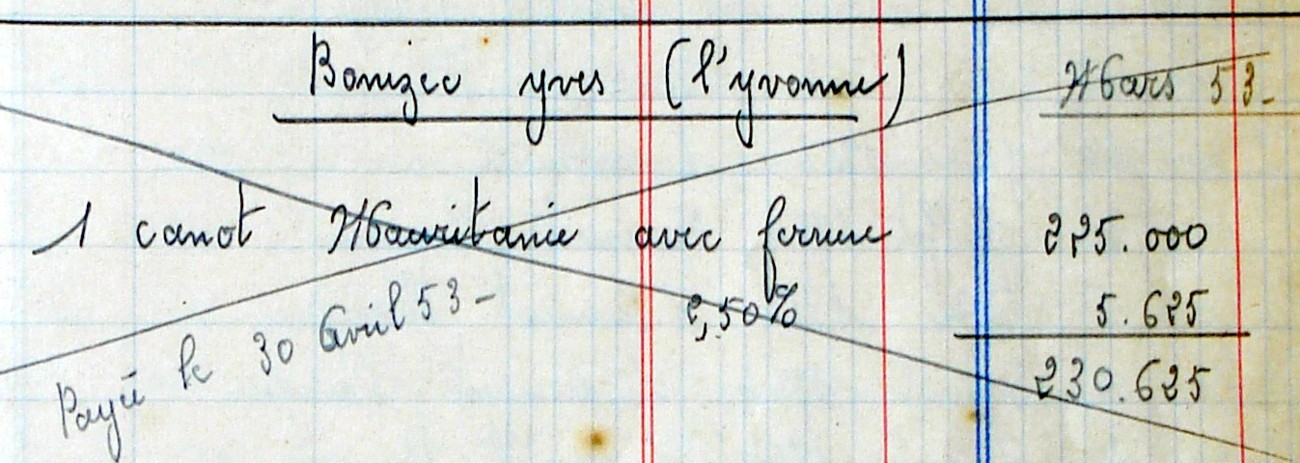 Bonizec yves (l'yvonne) Mars 53-
1 canot Mauritanie avec ferrure 225.000
2,50% 5.625
230.625
Payé le 30 Avril 53-